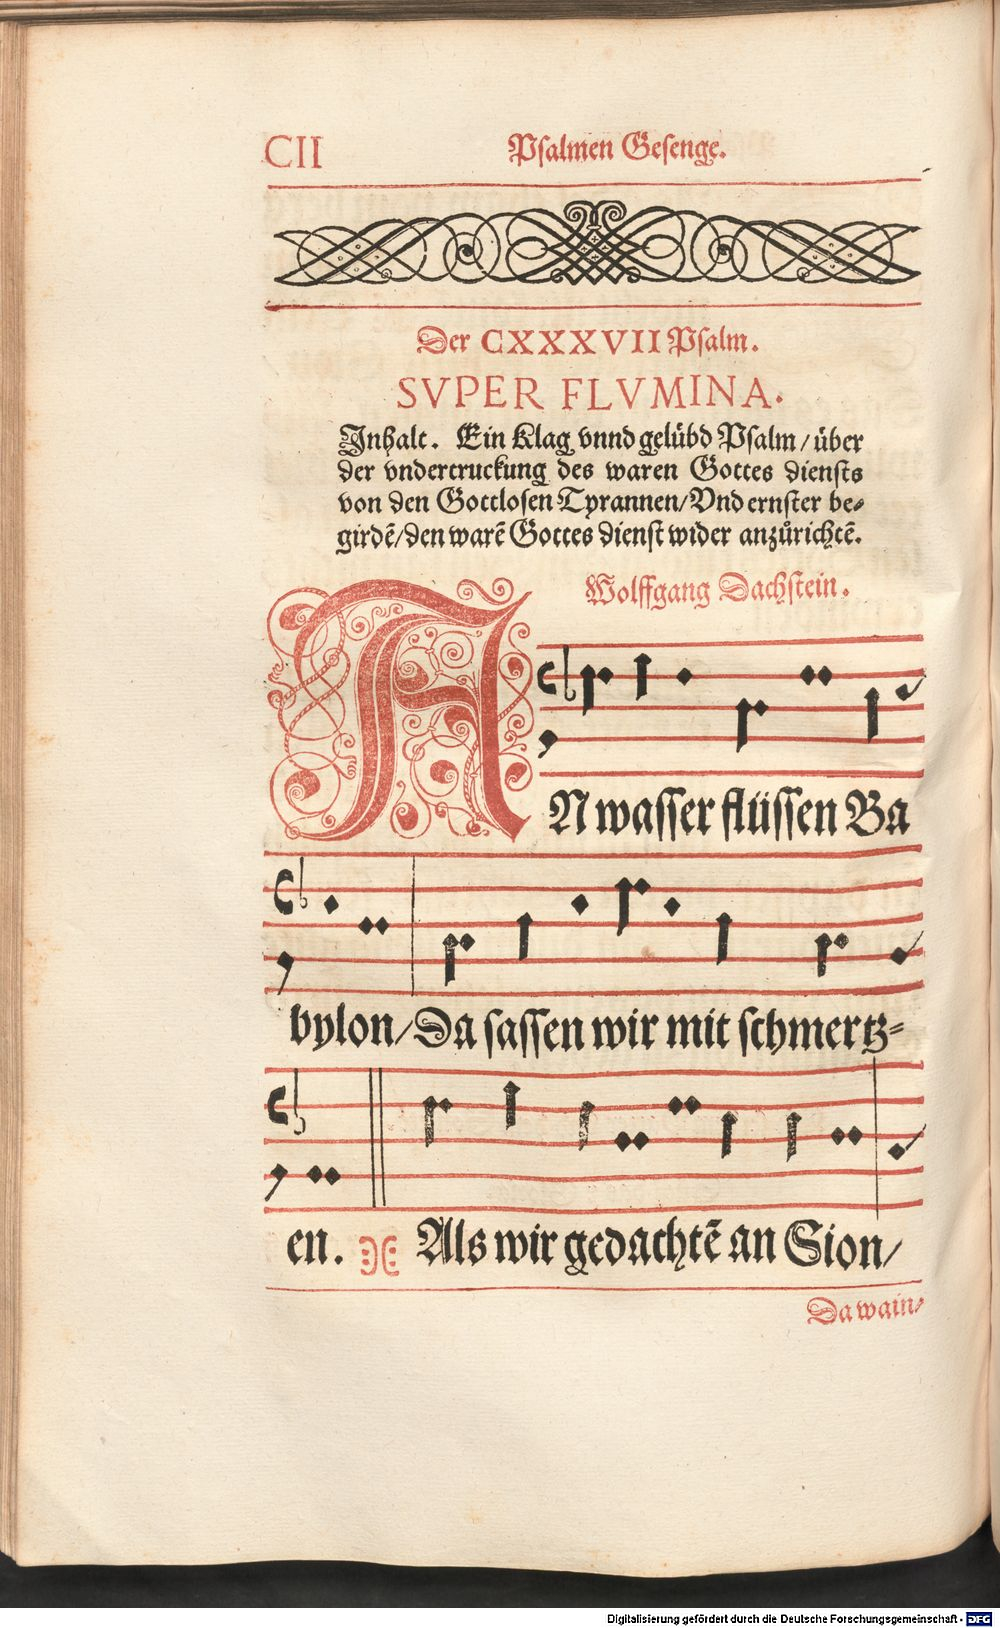 CII
Psalmen Gesenge.
Der CXXXVII Psalm.
SVPER FLVMINA.
Jnhalt. Ein Klag vnnd gelübd Psalm/über
der vndertruckung des waren Gottes diensts
von den Gottlosen Tyrannen/Vnd ernster be⸗
girdẽ/den warẽ Gottes dienst wider anzůrichtẽ.
Wolffgang Dachstein.
AN wasser flüssen Ba
bylon/Da sassen wir mit schmertz⸗
en. Als wir gedachtẽ an Sion/
Da wain⸗
Digitalisierung gefördert durch die Deutsche Forschungsgemeinschaft - DFG